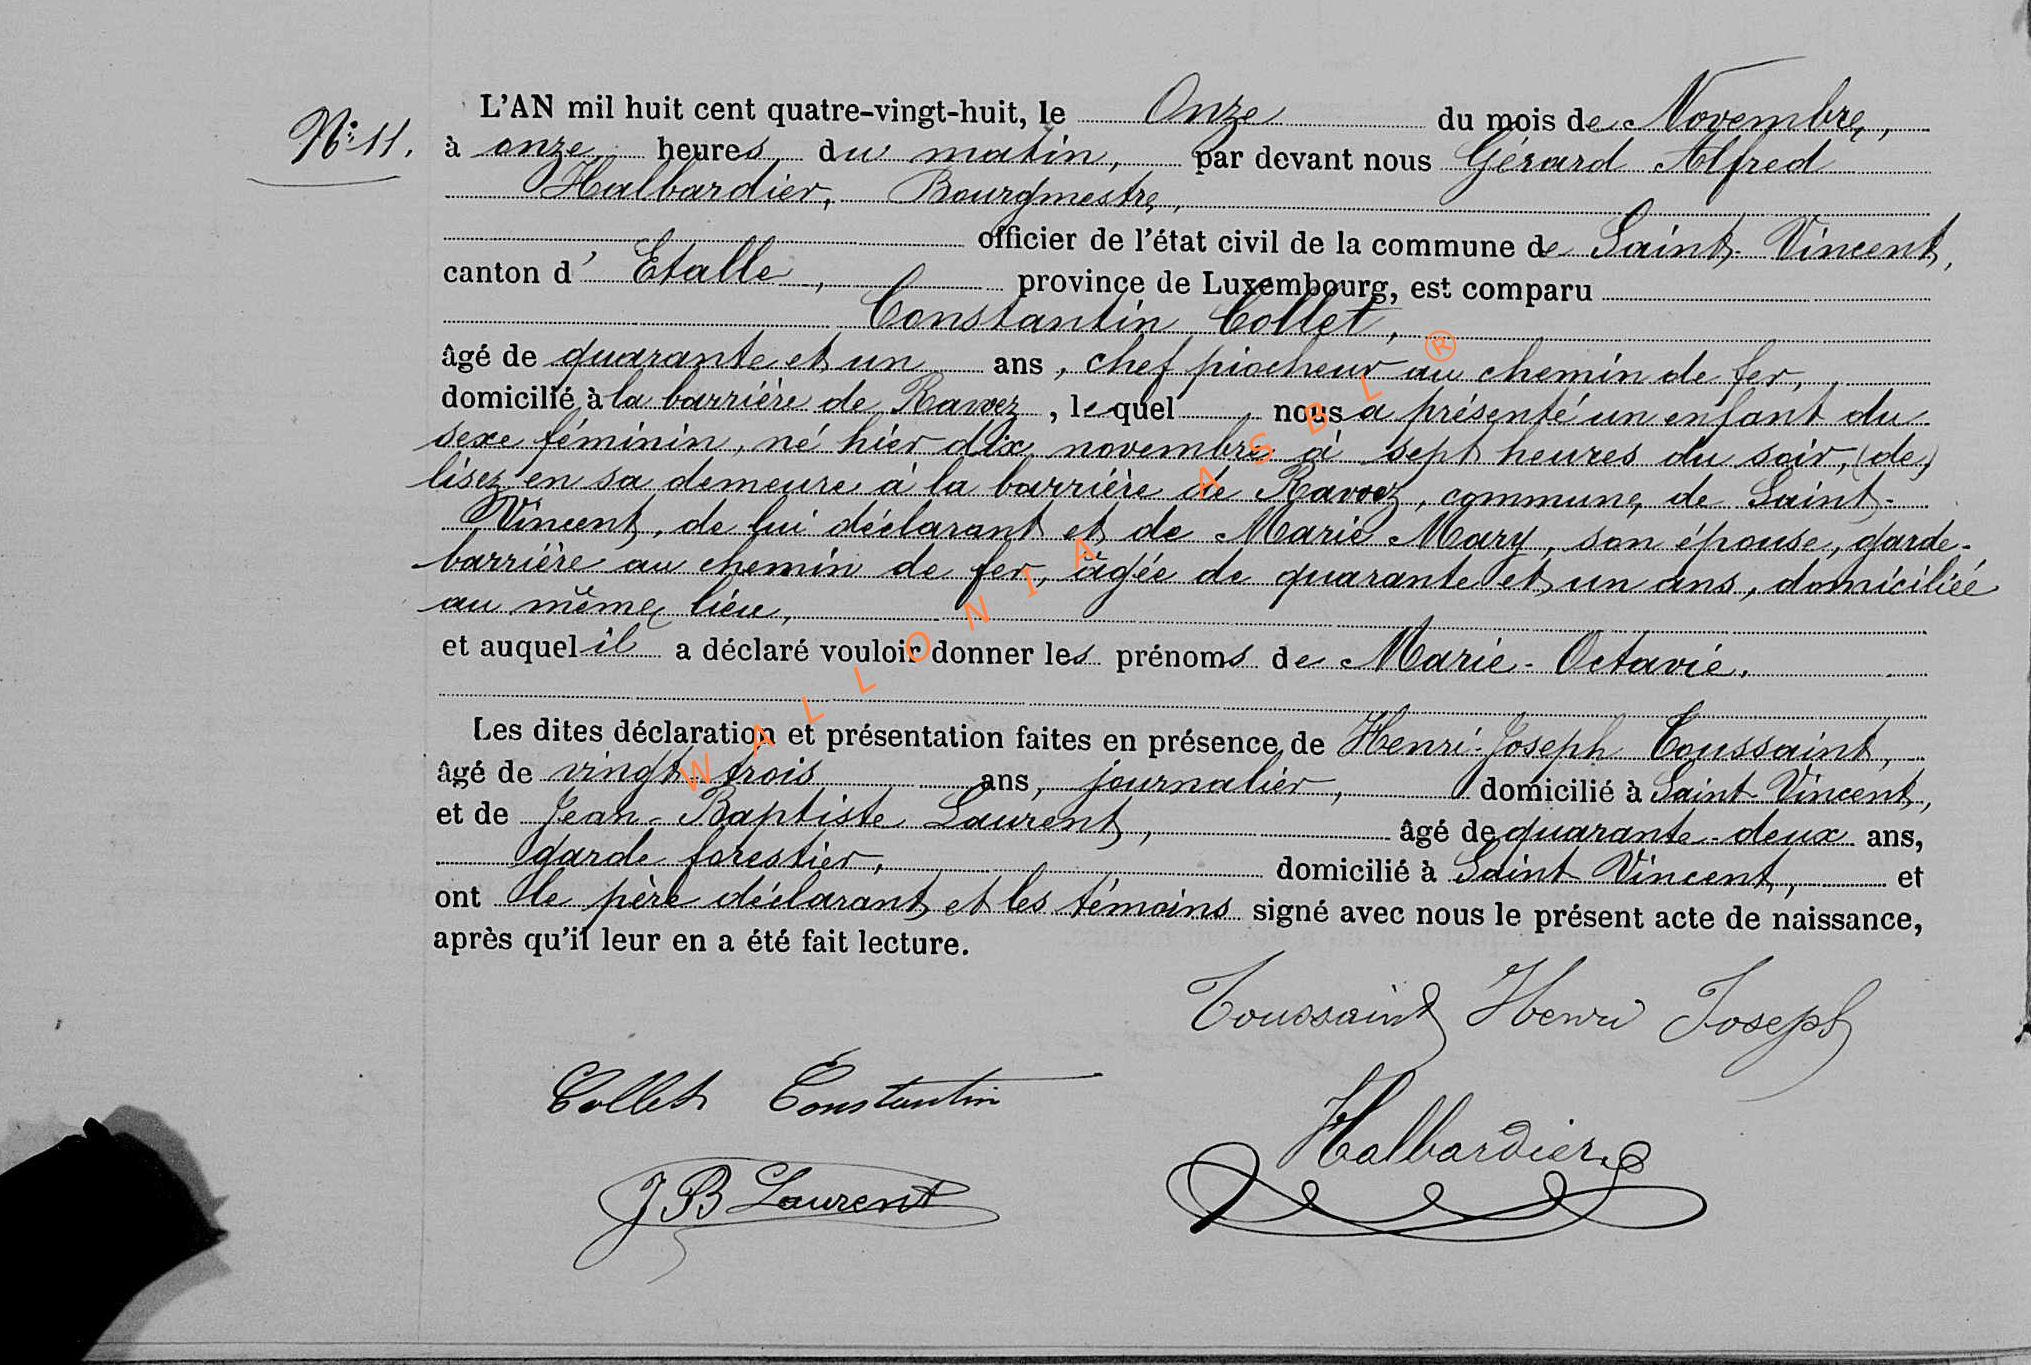 N° 11.
L'AN mil huit cent quatre-vingt-huit, le Onze du mois de Novembre,
à onze heures du matin, par devant nous Gérard Alfred
Halbardier, Bourgmestre,
officier de l'état civil de la commune de Saint-Vincent,
canton d'Etalle, province de Luxembourg, est comparu
Constantin Collet,
âgé de quarante et un ans, chef piocheur au chemin de fer,
domicilié à la barrière de Rawez, lequel nous a présenté un enfant du
sexe féminin, né hier dix novembre à sept heures du soir, (de)
lisez en sa demeure à la barrière de Rawez, commune de Saint-
Vincent, de lui déclarant et de Marie Mary, son épouse, garde-
barrière au chemin de fer, âgée de quarante et un ans, domiciliée
au même lieu,
et auquel il a déclaré vouloir donner les prénoms de Marie-Octavie.
Les dites déclaration et présentation faites en présence de Henri-Joseph Toussaint,
âgé de vingt trois ans, journalier, domicilié à Saint-Vincent,
et de Jean-Baptiste Laurent, âgé de quarante-deux ans,
garde forestier, domicilié à Saint Vincent, et
ont le père déclarant et les témoins signé avec nous le présent acte de naissance,
après qu'il leur en a été fait lecture.
Toussaint Henri Joseph
Collet Constantin
Halbardier
J B Laurent
WALLONIA ASBL ®